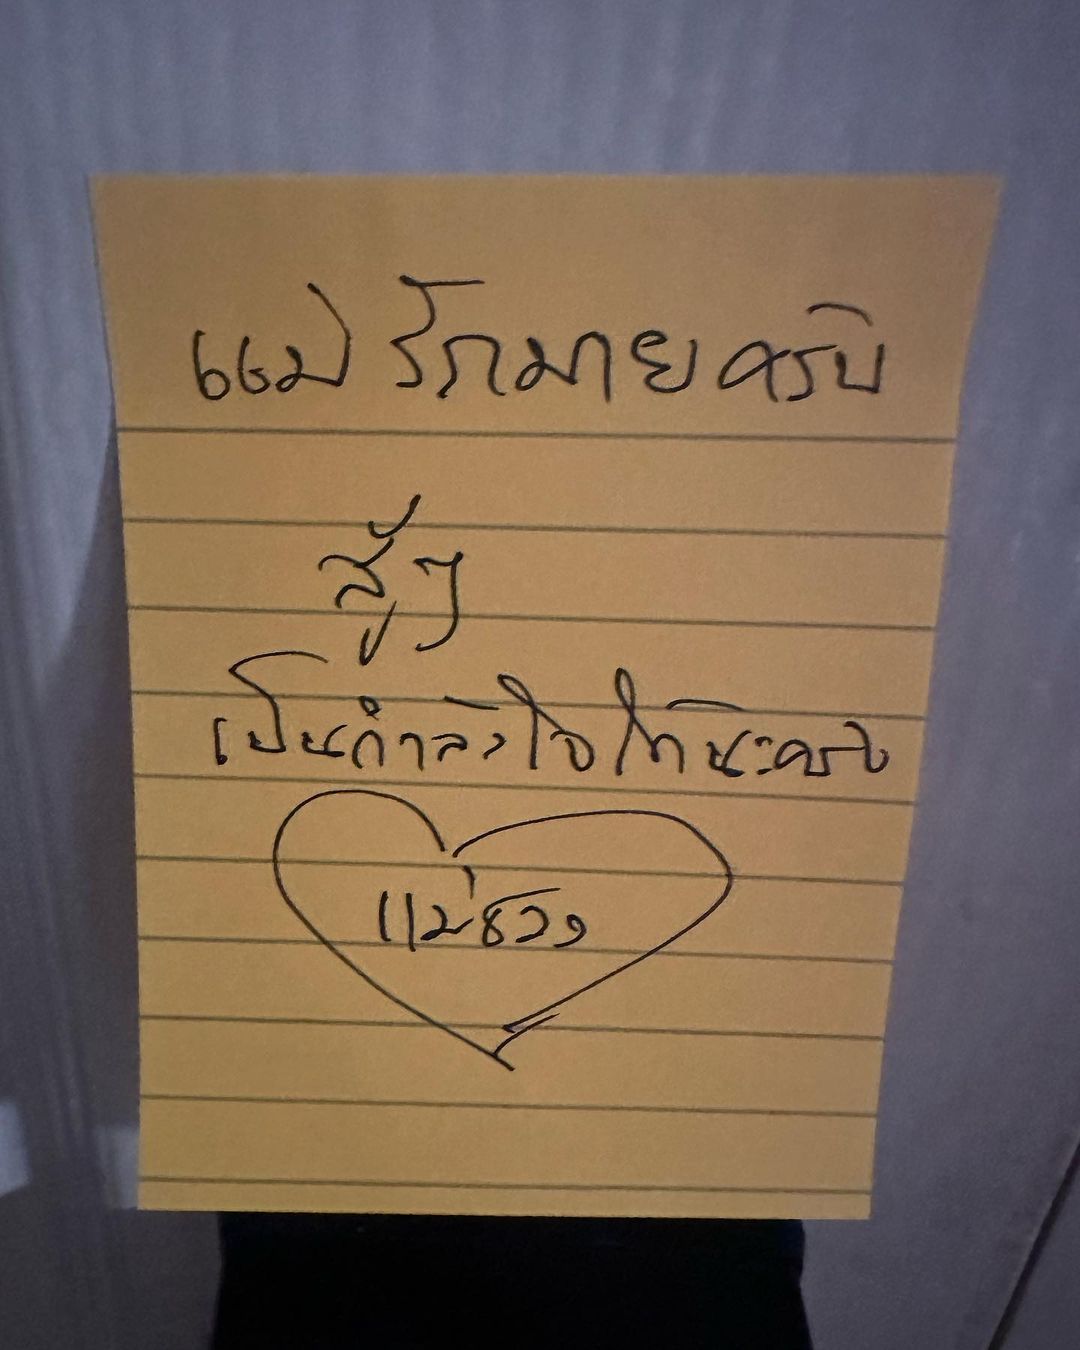 แม่รักมายครับ
สู้ๆ
เป็นกำลังใจให้นะครับ